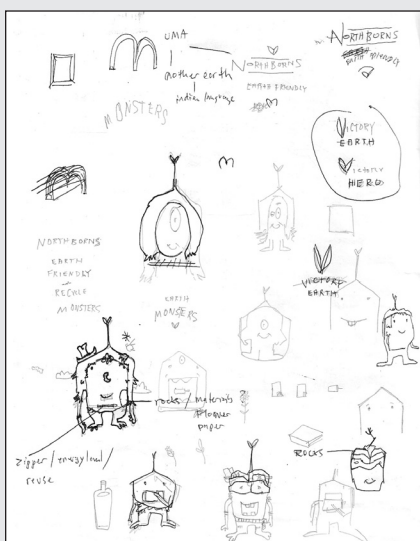 UMA
mother earth
indian language
MONSTERS
NORTHBORNS
EARTH FRIENDLY
NORTHBORNS
EARTH FRIENDLY
VICTORY
EARTH
VICTORY
HERO
NORTHBORNS
EARTH
FRIENDLY
RECYCLE
MONSTERS
EARTH
MONSERS
VICTORY
EARTH
rocks / materials
flower
paper
zipper / energy level /
reuse
ROCKS